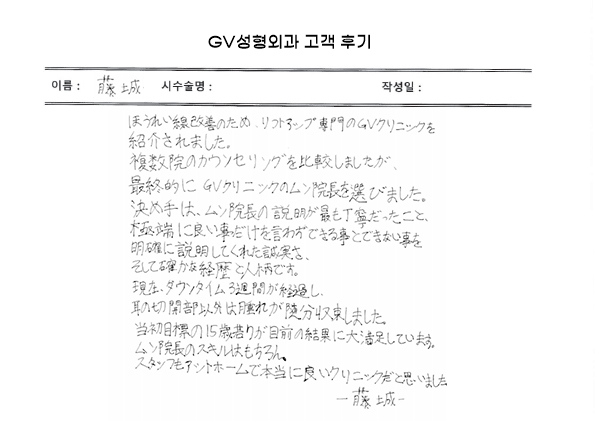 GV성형외과 고객 후기
이름 : 藤城 시수술명 : 작성일 :
ほうれい線改善のため、リフトアップ専門のGVクリニックを
紹介されました。
複数院のカウンセリングを比較しましたが、
最終的にGVクリニックのムン院長を選びました。
決め手は、ムン院長の説明が最も丁寧だったこと、
極端に良い事だけを言わずできる事とできない事を
明確に説明してくれた誠実さ、
そして確かな経歴と人柄です。
現在、ダウンタイム3週間が経過し、
耳の切開部以外は腫れが随分収束しました。
当初目標の15歳若りが目前の結果に大満足しています。
ムン院長のスキルはもちろん、
スタッフもアットホームで本当に良いクリニックだと思いました
ー藤城ー